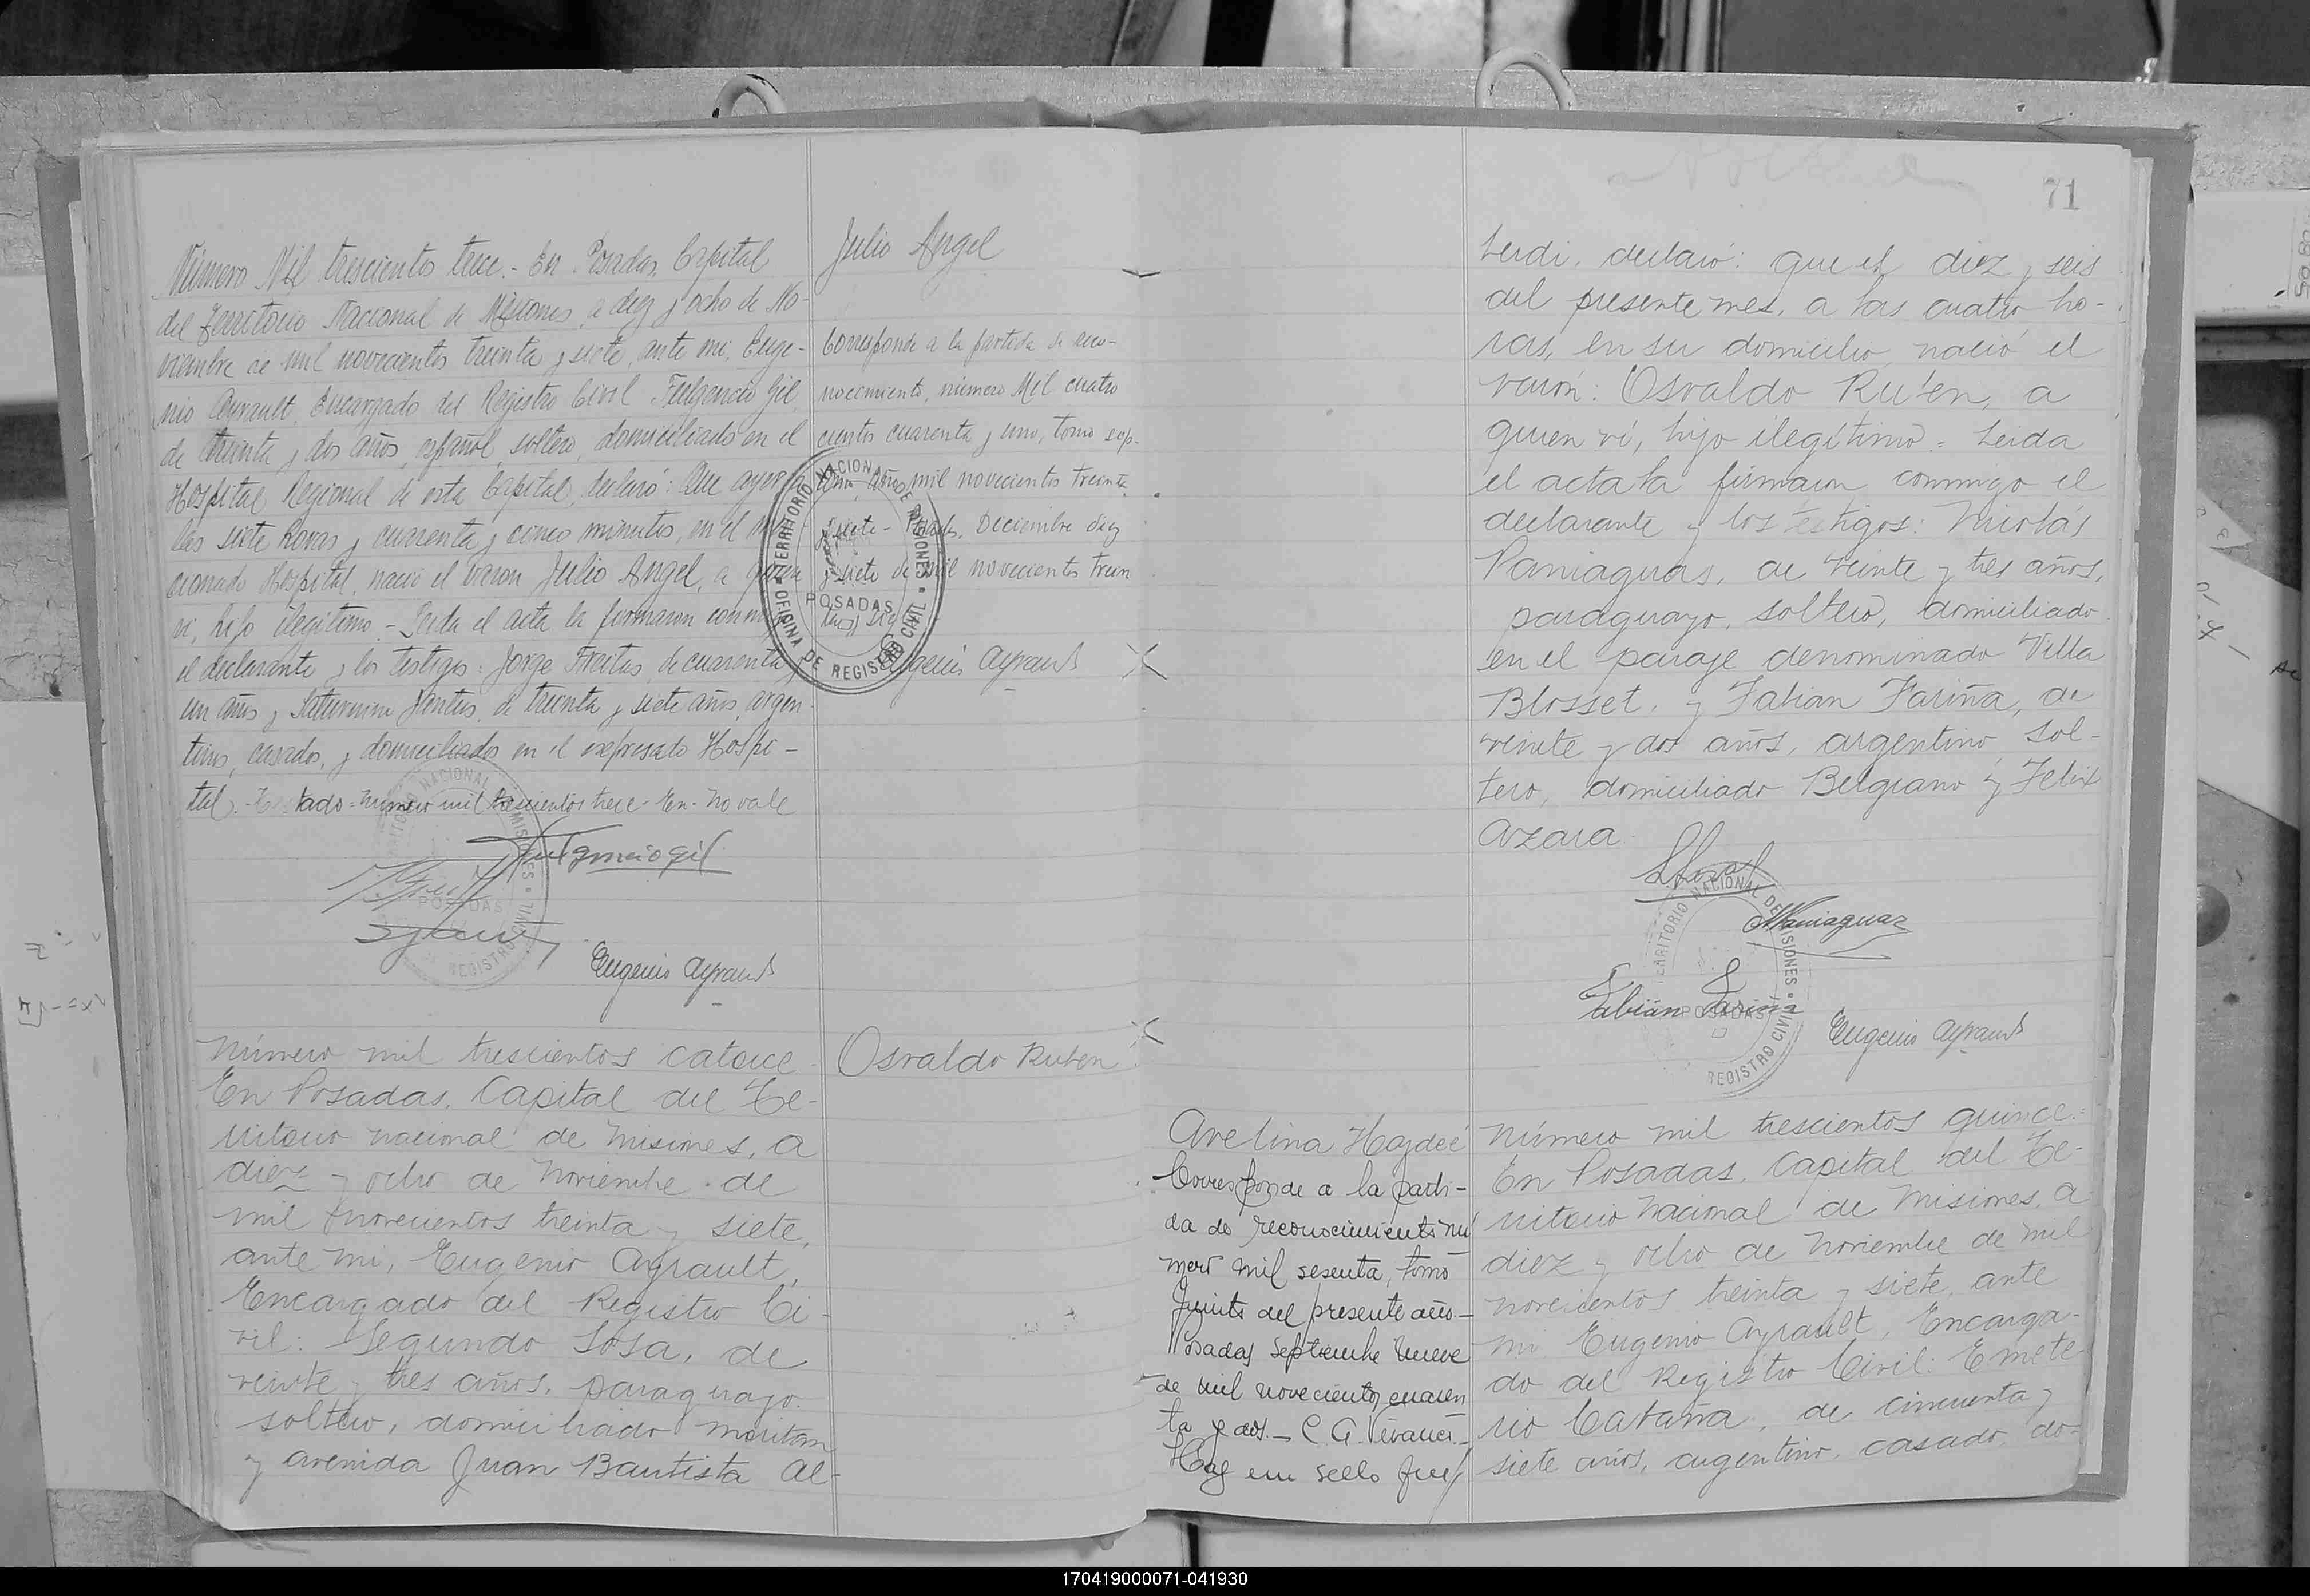 Número Mil trescientos trece.- En Posadas, Capital
del Territorio Nacional de Misiones, a diez y ocho de No-
viembre de mil novecientos treinta y siete, ante mi, Euge-
nio Ayrault, Encargado del Registro Civil Fulgencio Gil
de treinta y dos años, español, soltero, domiciliado en el
Hospital Regional de esta Capital, declaró: Que ayer a
las siete horas y cuarenta y cinco minutos, en el men-
cionado Hospital, nació el varon Julio Angel, a quien
vi, hijo ilegitimo.- Leida el acta la firmaron conmigo
el declarante y los testigos: Jorge Freitas, de cuarenta y
un años y Saturnino Santus, de treinta y siete años, argen-
tinos, casados, y domiciliados en el expresado Hospi-
tal.- Testado=número mil trescientos trece- En- No vale
Fulgencio Gil
Eugenio Ayrault
TERRITORIO NACIONAL DE MISIONES
POSADAS
REGISTRO CIVIL
Julio Angel
Corresponde a la partida de reco-
nocimiento, número Mil cuatro
cientos cuarenta y uno, tomo sep-
timo, Año mil novecientos treinta
y siete- Posadas, Diciembre diez
y siete de mil novecientos trein
ta y siete
Eugenio Ayrault
TERRITORIO NACIONAL DE MISIONES
POSADAS
OFICINA DE REGISTRO CIVIL
Número mil trescientos catorce
En Posadas, Capital del Te-
rritorio nacional de Misiones, a
diez y ocho de Noviembre de
mil novecientos treinta y siete,
ante mi, Eugenio Ayrault,
Encargado del Registro Ci-
vil: Segundo Sosa, de
veinte y tres años, paraguayo.
soltero, domiciliado Moritan
y avenida Juan Bautista Al-
Osvaldo Ruben
71
berdi, declaró: que el diez y seis
del presente mes, a las cuatro ho-
ras, en su domicilio nació el
varón: Osvaldo Rubén, a
quien ví, hijo ilegítimo = Leida
el acta la firmaron conmigo el
declarante y los testigos: Nicolás
Paniaguas, de veinte y tres años,
paraguayo, soltero, domiciliado
en el paraje denominado Villa
Blosset, y Fabian Fariña, de
veinte y dos años, argentino, sol-
tero, domiciliado Belgrano y Felix
Azara
SSosa
NPaniaguaz
Fabián Fariña
Eugenio Ayrault
TERRITORIO NACIONAL DE MISIONES
POSADAS
REGISTRO CIVIL
Avelina Haydeé
Corresponde a la parti-
da de reconocimiento nú
mero mil sesenta, tomo
Quinto del presente año-
Posadas Septiembre nueve
de mil novecientos cuaren
ta y dos.-
Hay un sello
Número mil trescientos quince.=
En Posadas, Capital del Te-
rritorio Nacional de Misiones, a
diez y ocho de Noviembre de mil
novecientos treinta y siete, ante
mi Eugenio Ayrault, Encarga-
do del Registro Civil: Emete-
rio Cataña, de cincuenta y
siete años, argentino, casado, do-
170419000071-041930